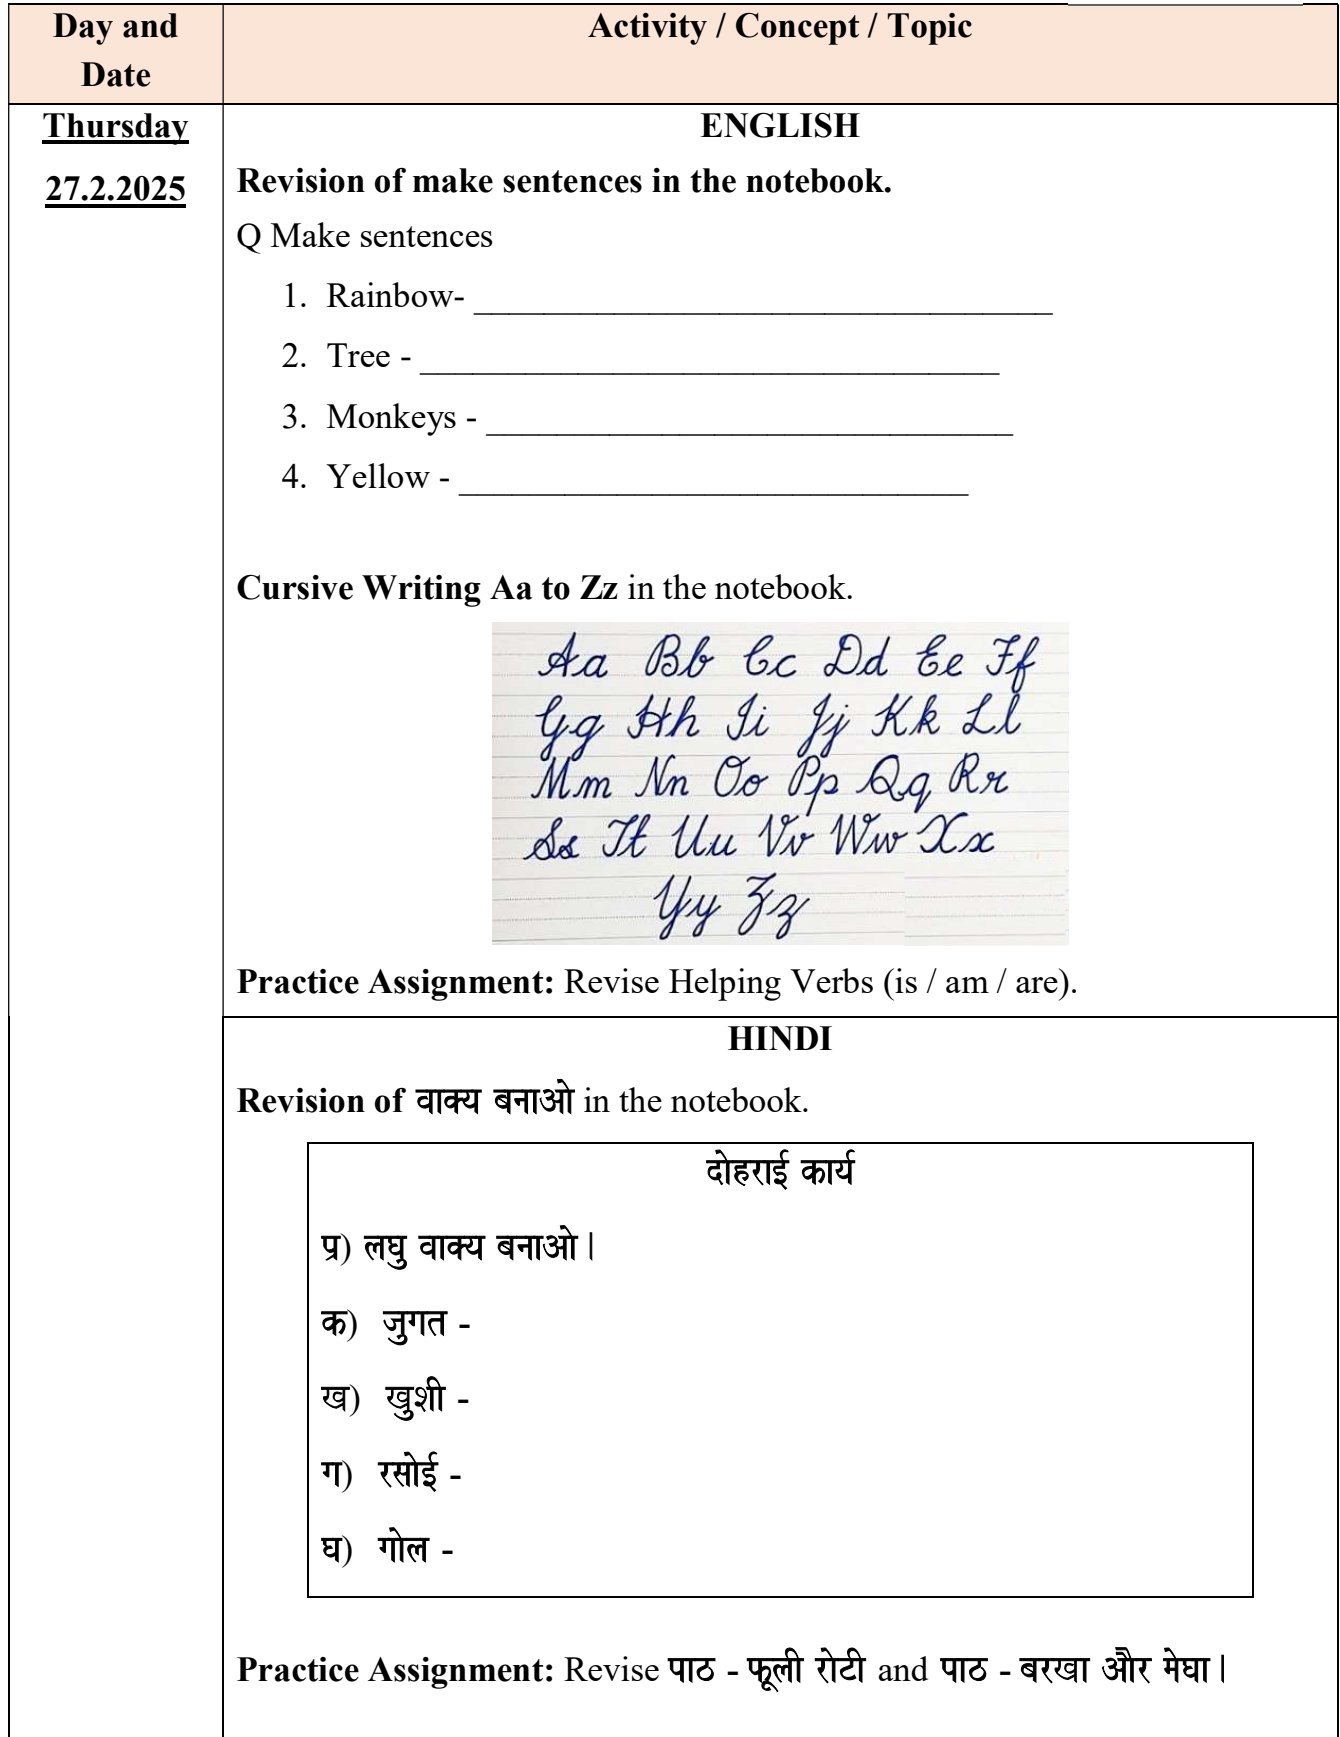 Day and Date
Activity / Concept / Topic
Thursday
27.2.2025
ENGLISH
Revision of make sentences in the notebook.
Q Make sentences
1. Rainbow- _________________________________
2. Tree - _________________________________
3. Monkeys - ______________________________
4. Yellow - _____________________________
Cursive Writing Aa to Zz in the notebook.
Aa Bb Cc Dd Ee Ff
Gg Hh Ii Jj Kk Ll
Mm Nn Oo Pp Qq Rr
Ss Tt Uu Vv Ww Xx
Yy Zz
Practice Assignment: Revise Helping Verbs (is / am / are).
HINDI
Revision of वाक्य बनाओ in the notebook.
दोहराई कार्य
प्र) लघु वाक्य बनाओ।
क) जुगत -
ख) खुशी -
ग) रसोई -
घ) गोल -
Practice Assignment: Revise पाठ - फूली रोटी and पाठ - बरखा और मेघा।